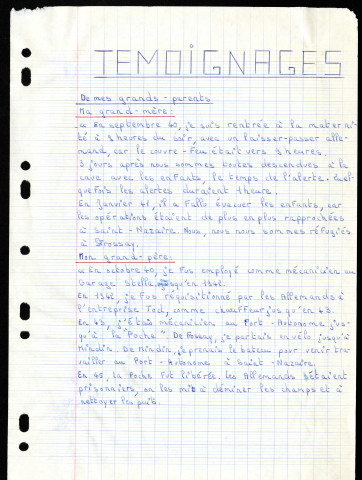 TEMOIGNAGES
De mes grands-parents
Ma grand-mère:
« En septembre 40, je suis rentrée à la materni-
té à 8 heures du soir, avec un laisser-passer alle-
mand, car le couvre-feu était vers 9 heures.
3 jours après nous sommes toutes descendues à la
cave avec les enfants, le temps de l'alerte. Quel-
quefois les alertes duraient 1 heure.
En Janvier 41, il a fallu évacuer les enfants, car
les opérations étaient de plus en plus rapprochées
à Saint-Nazaire. Nous, nous nous sommes réfugiés
à Frossay.
Mon grand-père:
« En octobre 40, je fus employé comme mécanicien au
Garage Stella jusqu'en 1942.
En 1942, je fus réquisitionné par les Allemands à
l'entreprise Tod, comme chauffeur jusqu'en 43.
En 43, j'étais mécanicien au Port-Autonome jus-
qu'à la "Poche". De Frossay, je partais en vélo jusqu'à
Mindin. De Mindin, je prenais le bateau pour venir tra-
vailler au Port-Autonome à Saint-Nazaire.
En 45, la Poche fût libérée. Les Allemands étaient
prisonniers, on les mit à déminer les champs et à
nettoyer les puits.